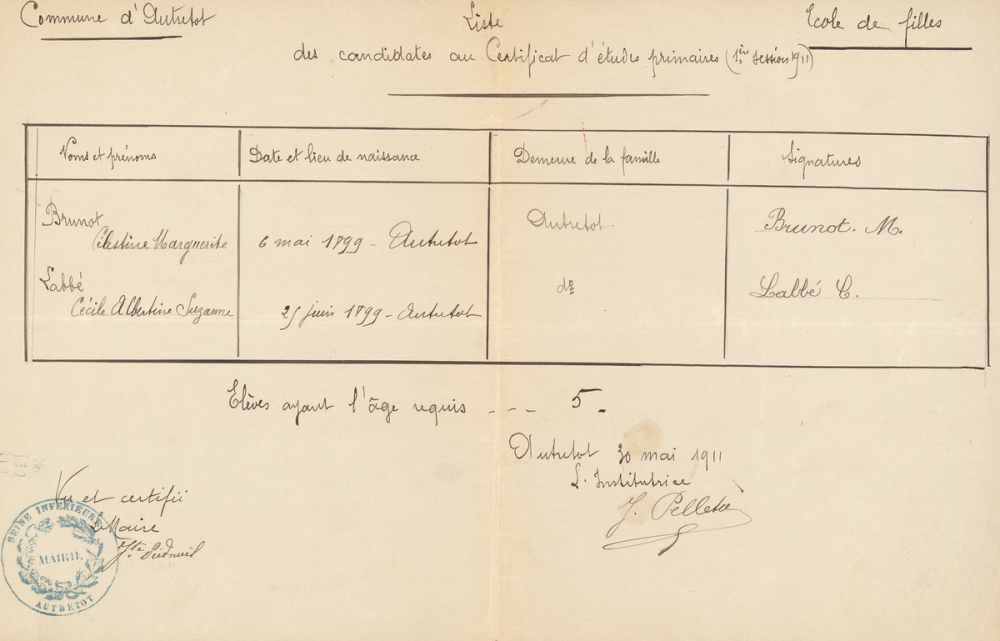 Commune d'Autretot
Liste
Ecole de filles
des candidates au Certificat d'études primaires (1ère session 1911)
Noms et prénoms
Date et lieu de naissance
Demeure de la famille
Signatures
Brunot
Célestine Marguerite
6 mai 1799 - Autretot
Autretot
Brunot. M.
Labbé
Cécile Albertine Suzanne
25 juin 1799 - Autretot
do
Labbé C.
Elèves ayant l'âge requis --- 5.
Autretot 30 mai 1911
L'Institutrice
J. Pelletié
Vu et certifié
Le Maire
SEINE INFERIEURE
MAIRIE
AUTRETOT